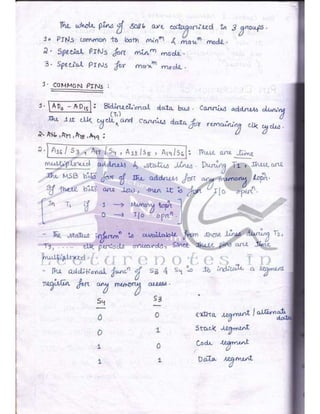 The whole pins of 8086 are categorized in 3 groups.
1. PINs common to both min^m & max^m mode.
2. Special PINs for min^m mode.
3. Special PINs for max^m mode.
1. COMMON PINs :
1. AD0 - AD15 : Bidirectional data bus. Carries address during
the 1st clk cycle (T1) and carries data for remaining clk cycles.
2. A16, A17, A18, A19 :
2. A16/S3, A17/S4, A18/S5, A19/S6 : These are time
multiplexed address & status lines. During T1, these are
the MSB bits of the address for any memory opn.
If these bits are low, then it is for I/O opern.
In T1 if 1 → Memory opn
0 → I/O opn
- The status inform^n is available from those lines during T2,
T3, .... clk periods onwards, since these pins are time
multiplexed.
lecturenotes.in
- The additional func^n of S3 & S4 is to indicate a segment
register for any memory access.
S4 S3
0 0 extra segment / alternate data
0 1 Stack segment
1 0 Code segment
1 1 Data segment